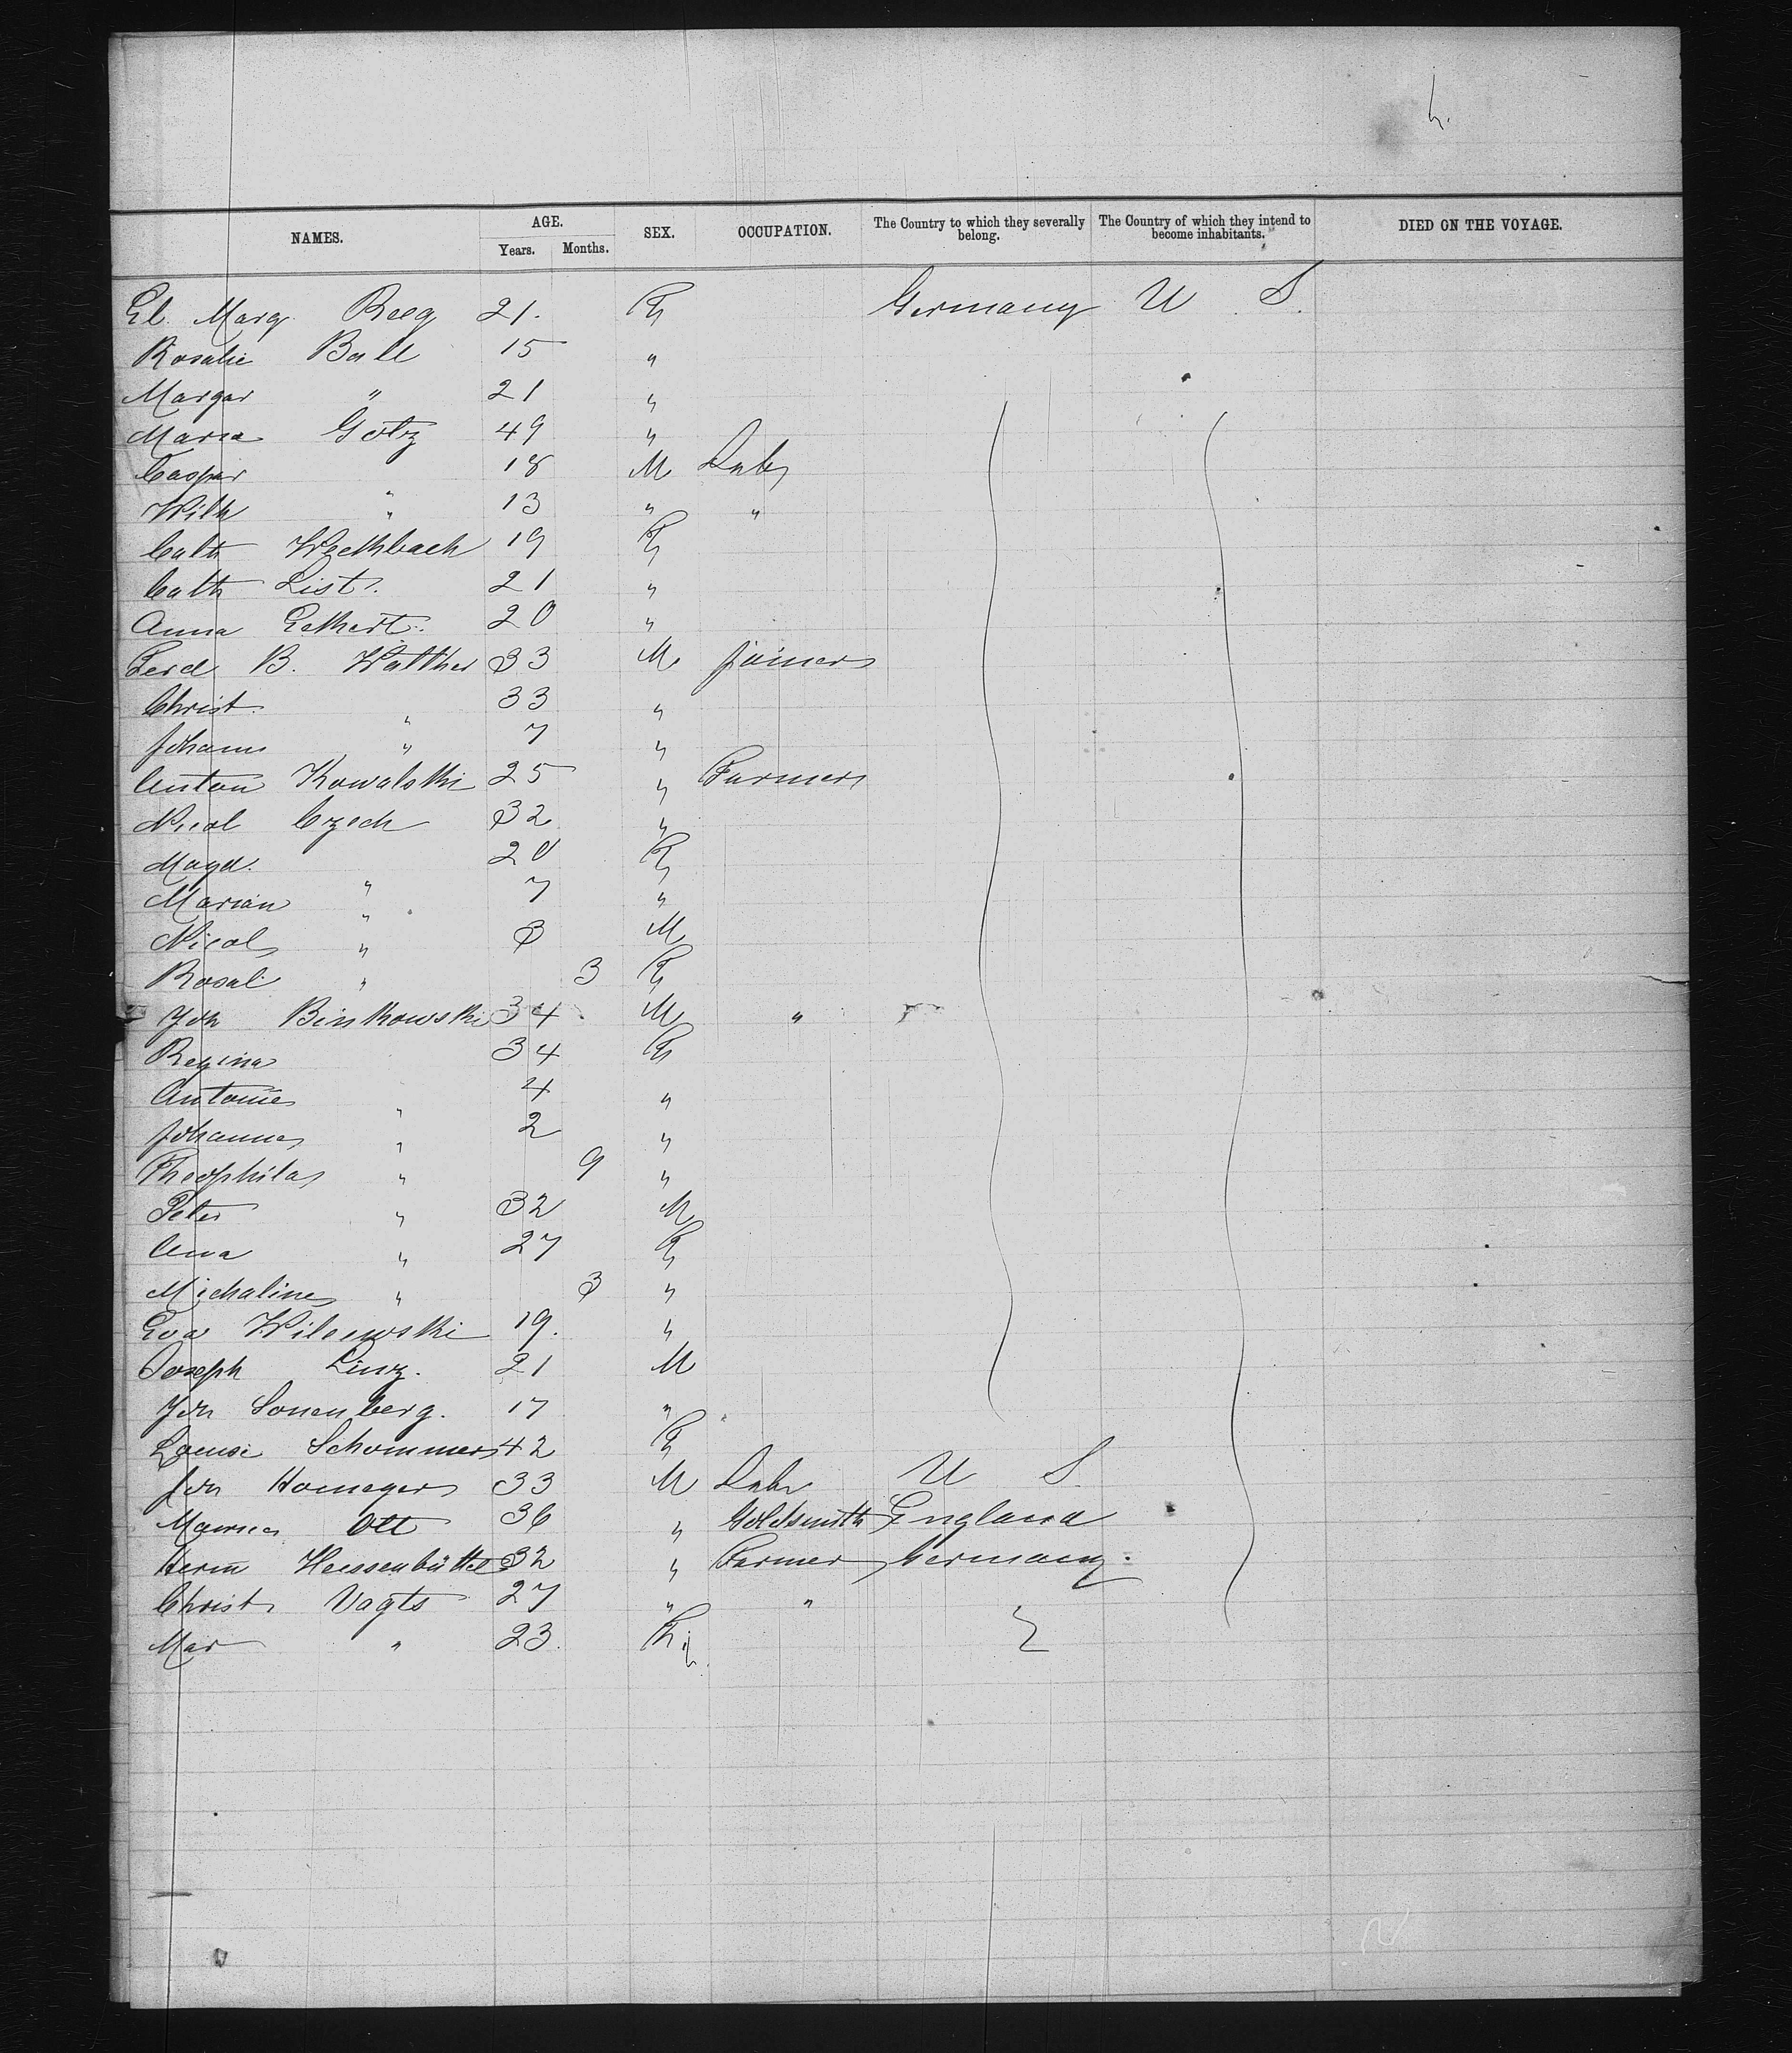 h.
NAMES. AGE. SEX. OCCUPATION. The Country to which they severally belong. The Country of which they intend to become inhabitants. DIED ON THE VOYAGE.
Years. Months.
El. Marg. Reeg 21. F Germany U. S.
Rosalie Ball 15 "
Margar " 21 "
Maria Götz 49 "
Caspar 18 M Labr
Wilh " 13 " "
Cath 19 F
Cath List. 21 "
Anna Eckhert. 20 "
Ferd B. Walther 33 M. Joiner
Christ. " 33 "
Johann " 7 "
Anton Kowalski 25 " Farmer
Nicol Czech 32 "
Magd. " 20 F
Marian " 7 "
Nicol " 3 M
Rosali " 3 F
Joh Binkowski 34 M "
Regina 34 F
Antonie " 4 "
Johanna " 2 "
Theophila " 9 "
Peter " 32 M
Anna " 27 F
Michaline " 3 "
Eva 19. "
Joseph Linz. 21 M
Joh Sonenberg. 17 "
Louise Schommer 42 F
Joh 33 M Labr U S
Ott 36 " Goldsmith England
Herm Heissenbüttel 32 " Farmer Germany.
Christ Vagts 27 " "
Mar " 23. F